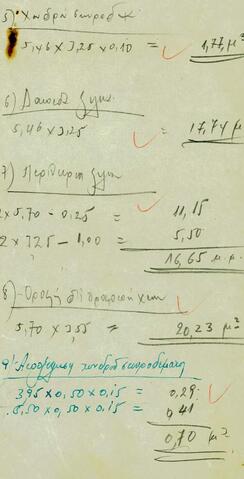 5) Χονδρό σκυρόδεμα
5,46 x 3,25 x 0,10 = 1,77 μ³
6) Δάπεδα ξύλιν.
5,46 x 3,25 = 17,74 μ²
7) Περιθώρια ξύλιν.
2x5,70 - 0,25 = 11,15
2x 3,25 - 1,00 = 5,50
16,65 μ.μ.
8) Οροφή
5,70 x 3,55 = 20,23 μ²
9) σκυροδέματος
3,95 x 0,50 x 0,15 = 0,29
5,50 x 0,50 x 0,15 = 0,41
0,70 μ³